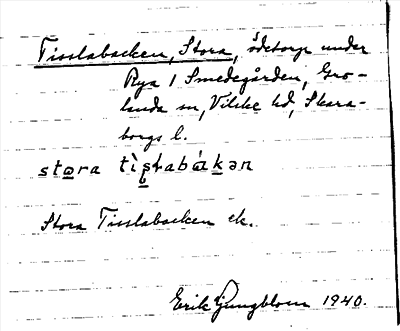 Tisslabacken, Stora, ödetorp under
Rya 1 Smedegården, Gro-
landa sn, Vilske hd, Skara-
borgs l.
stora tìslabákən
Stora Tisslabacken ek.
Erik Ljungblom 1940.